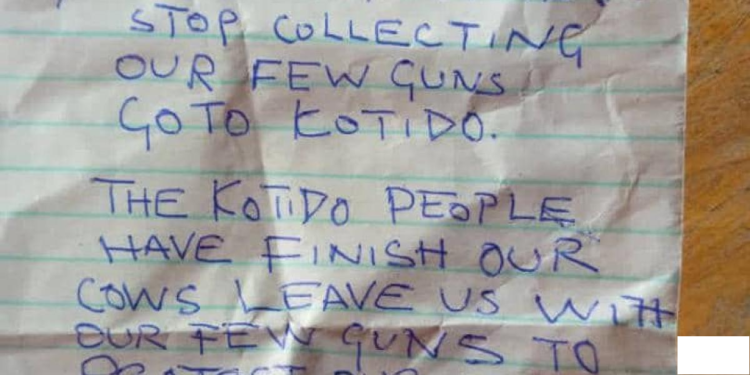 STOP COLLECTING
OUR FEW GUNS
GO TO KOTIDO.
THE KOTIDO PEOPLE
HAVE FINISH OUR
COWS LEAVE US WITH
OUR FEW GUNS TO
PROTECT OUR